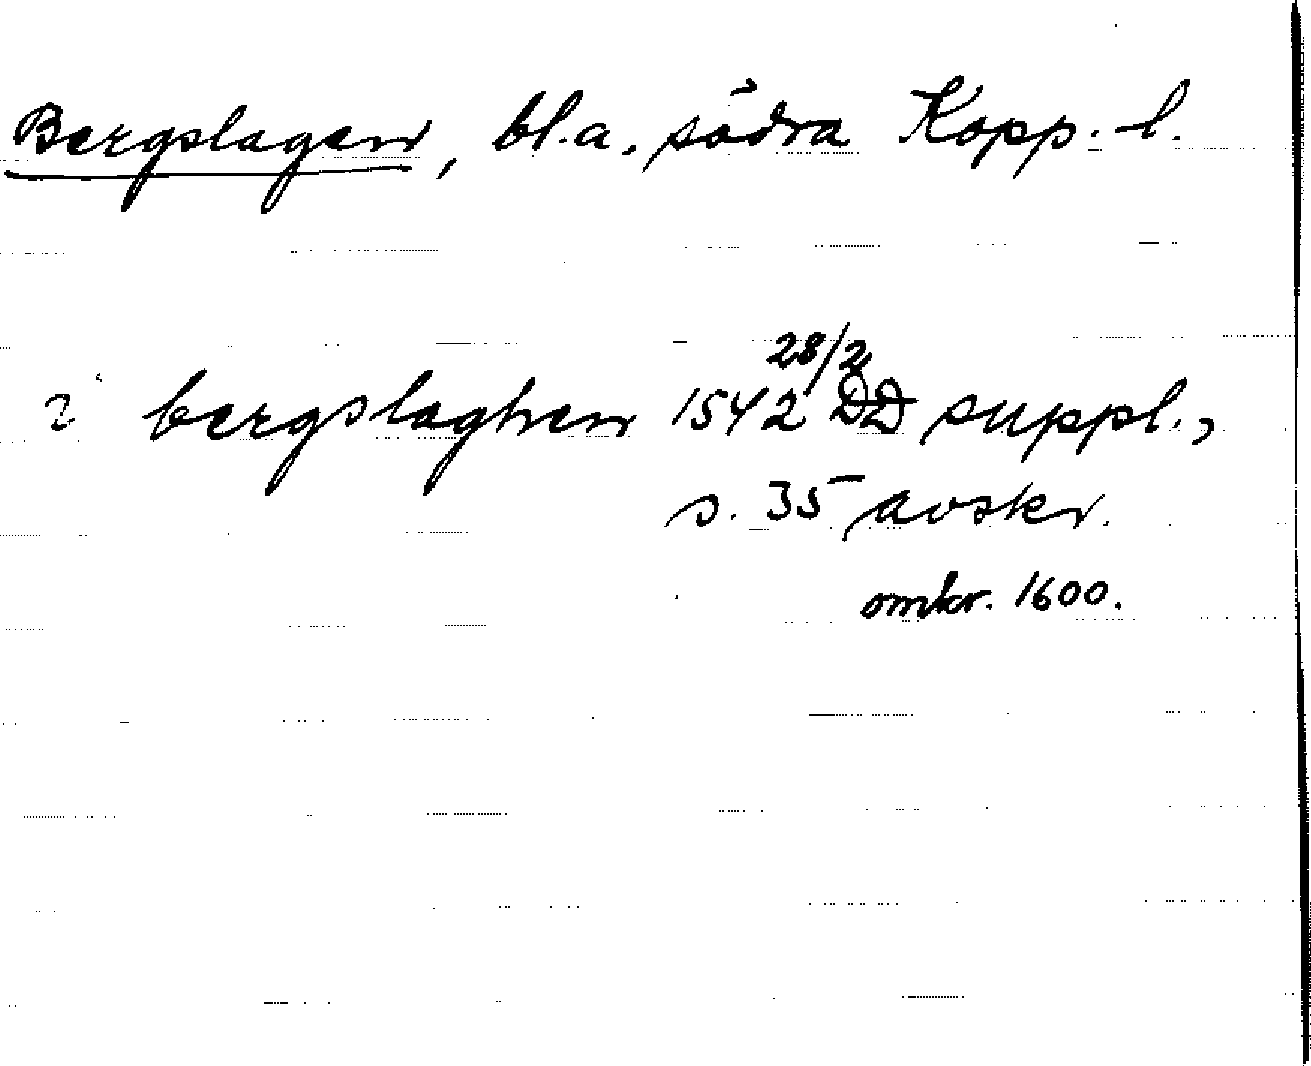 Bergslagen, bl.a. södra Kopp. l.
i bergslaghen 1542 28/2 DD suppl.,
s. 35 avskr.
omkr. 1600.